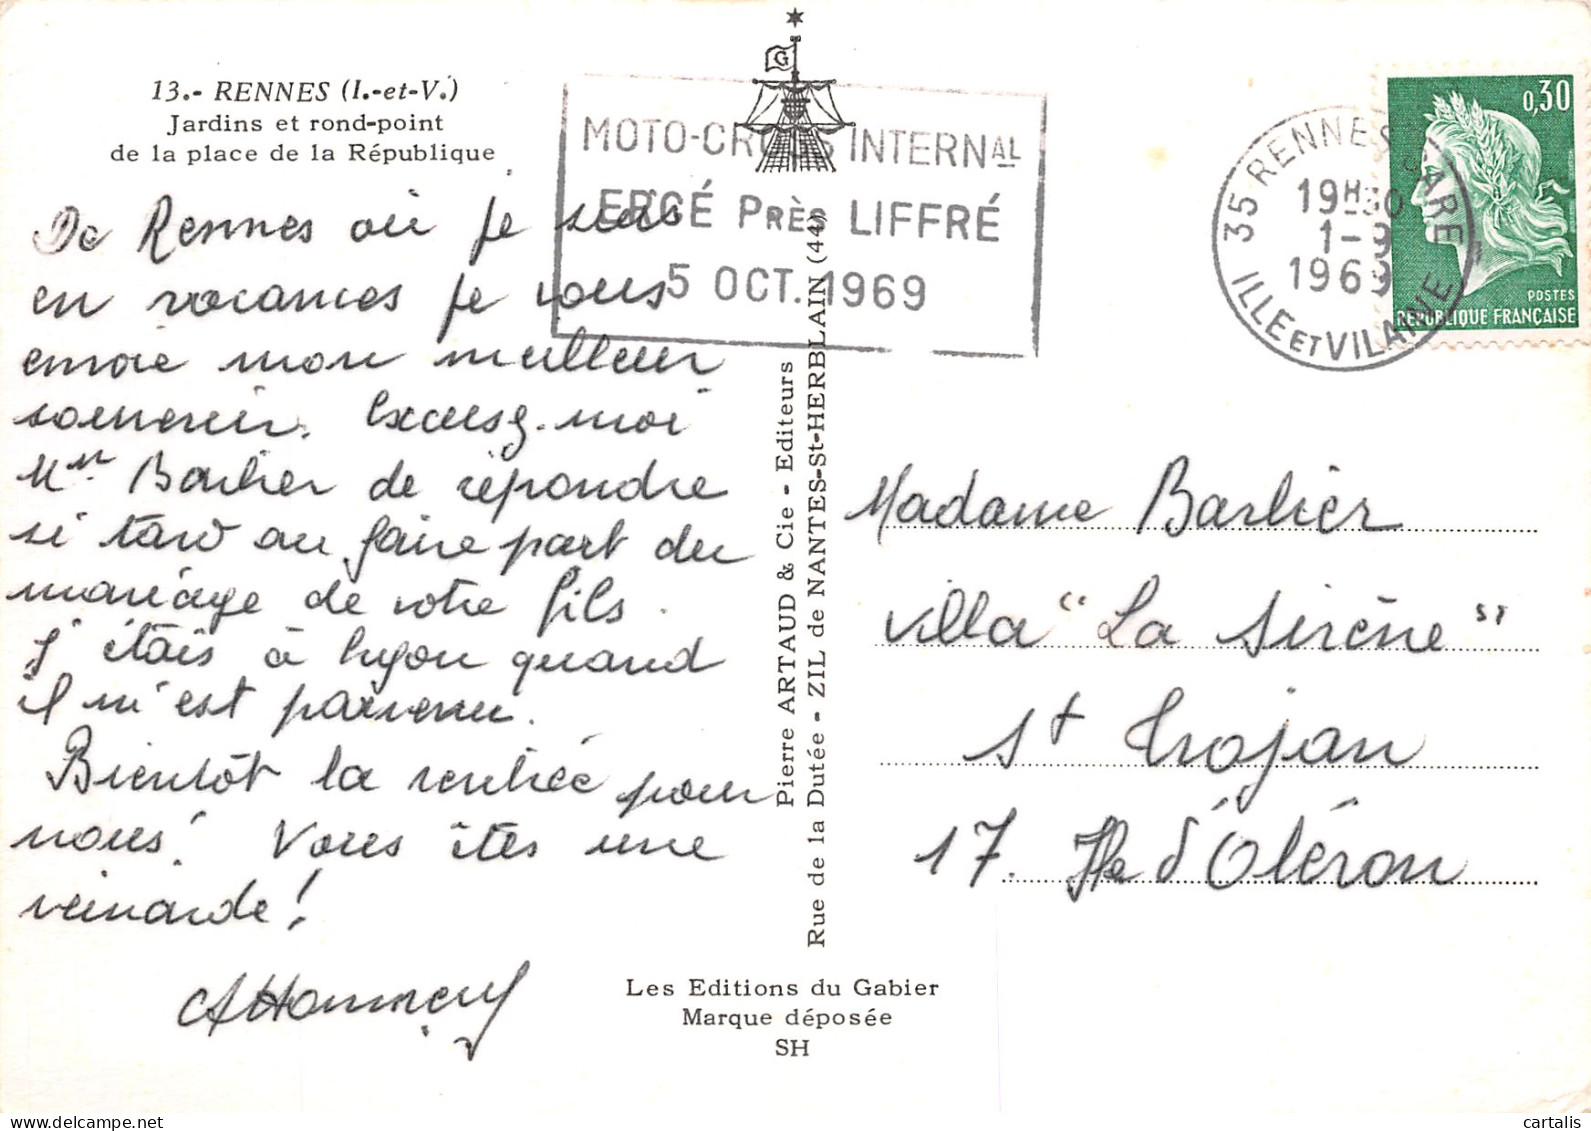 13.- RENNES (I.-et-V.)
Jardins et rond-point
de la place de la République
De Rennes où je suis
en vacances je vous
envoie mon meilleur
souvenir. Excusez-moi
Mme Barbier de répondre
si tard au faire part du
mariage de votre fils.
J'étais à Lyon quand
il m'est parvenu.
Bientôt la rentrée pour
nous! Vous êtes une
veinarde!
G
MOTO-CROSS INTERNAL
ERCÉ PRÈS LIFFRÉ
5 OCT. 1969
Pierre ARTAUD & Cie - Editeurs
Rue de la Dutée - ZIL de NANTES-St-HERBLAIN (44)
Les Editions du Gabier
Marque déposée
SH
35 RENNES GARE
19H30
1-9
1969
ILLE ET VILAINE
0,30
POSTES
REPUBLIQUE FRANÇAISE
Madame Barbier
Villa "La Sirène"
St Trojan
17. Ile d'Oléron
cartalis